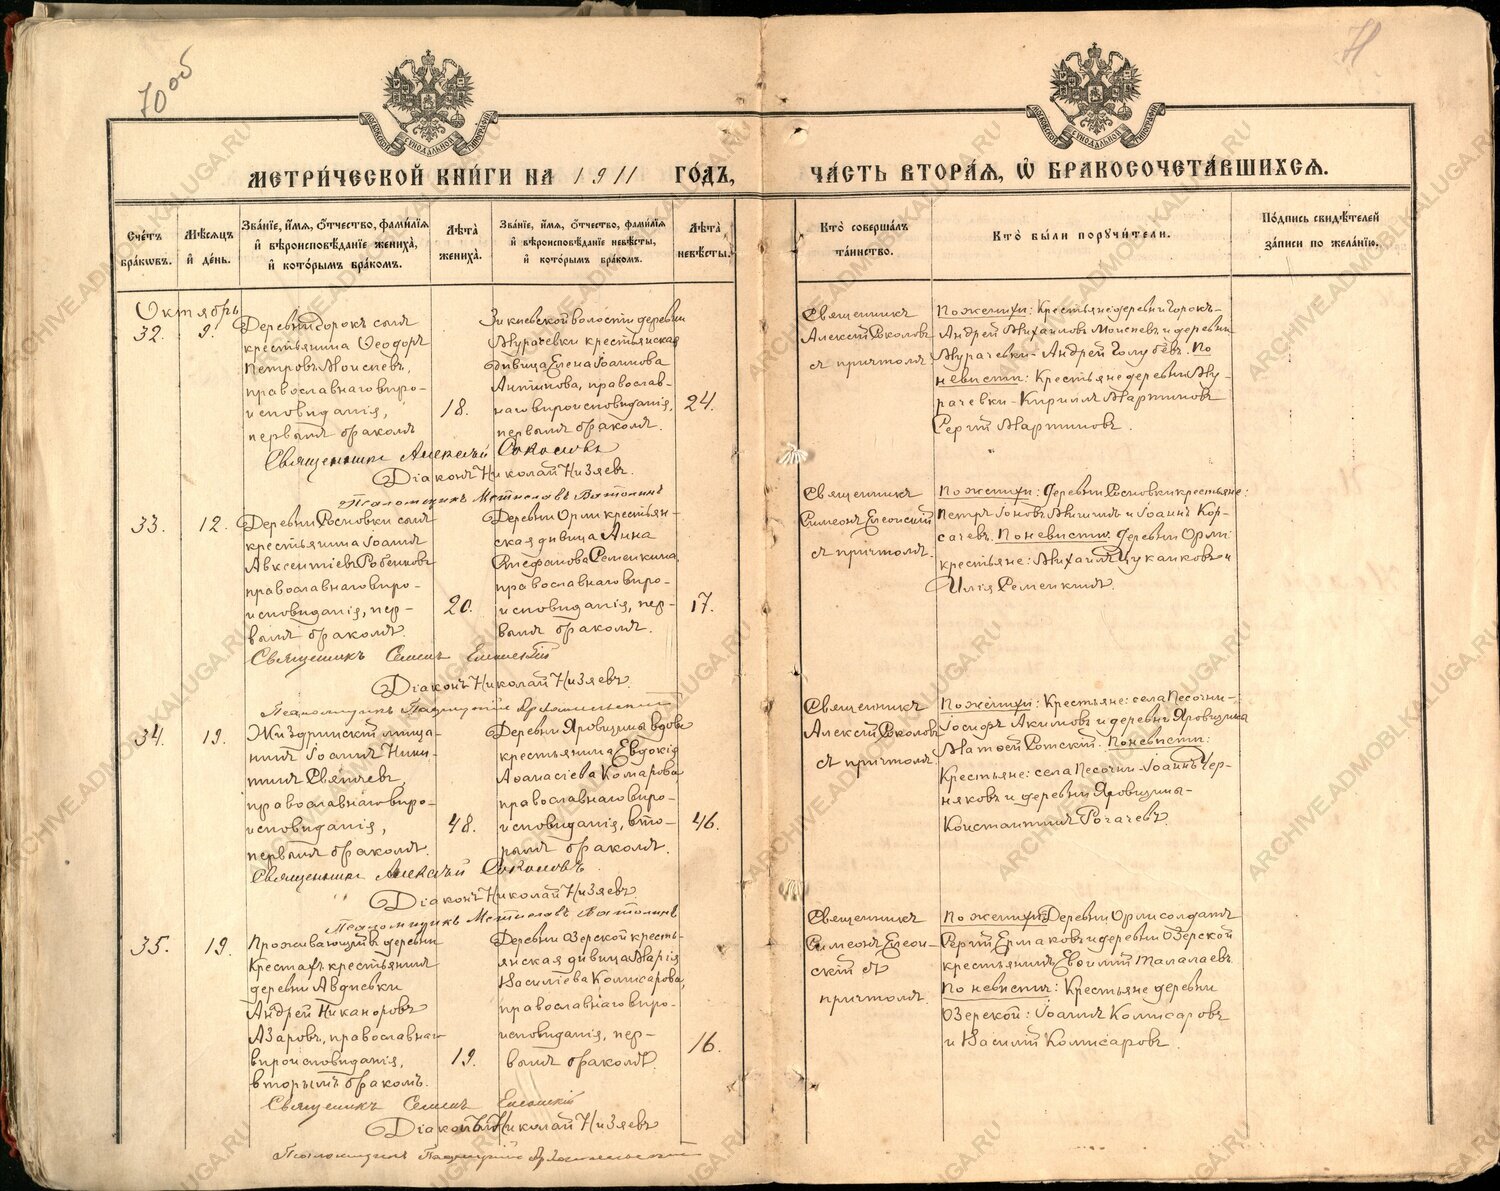 70 об
71
МЕТРИ́ЧЕСКОЙ КНИ́ГИ НА 1911 ГО́ДЪ,
ЧА́СТЬ ВТОРА́Я, Ѡ҆ БРАКОСОЧЕТА́ВШИХСЯ.
Сче́тъ бра́кѡвъ.
Мѣ́сяцъ и҆ де́нь.
Зва́нїе, и҆́мя, ѻ҆́тчество, фами́лїя и҆ вѣроисповѣ́данїе жениха̀, и҆ кото́рымъ бра́комъ.
Лѣ́та жениха̀.
Зва́нїе, и҆́мя, ѻ҆́тчество, фами́лїя и҆ вѣроисповѣ́данїе невѣ́сты, и҆ кото́рымъ бра́комъ.
Лѣ́та невѣ́сты.
Кто̀ соверша́лъ та́инство.
Кто̀ бы́ли порꙋчи́тели.
По́дпись свидѣ́телей за́писи по жела́нїю.
Октябрь
32.
9.
Деревни Горокъ сынъ
крестьянина Ѳеодоръ
Петровъ Моисеевъ,
православнаго вѣро-
исповѣданія,
первымъ бракомъ
18.
Зикеевской волости деревни
Мурачевки крестьянская
дѣвица Елена Іоаннова
Антипова, православ-
наго вѣроисповѣданія,
первымъ бракомъ.
24.
Священникъ
Алексѣй Соколовъ
съ причтомъ
По женихѣ: Крестьяне деревни Горокъ-
Андрей Михаиловъ Моисеевъ и деревни
Мурачевки- Андрей Голубевъ. По
невѣстѣ: Крестьяне деревни Му-
рачевки- Кириллъ Мартиновъ
Сергій Мартиновъ.
Священникъ Алексѣй Соколовъ
Діаконъ Николай Низяевъ.
Псаломщикъ Мстиславъ Ватолинъ
33.
12.
Деревни Сосновки сынъ
крестьянина Іоаннъ
Авксентіевъ
православнаго вѣро-
исповѣданія, пер-
вымъ бракомъ.
20.
Деревни Орли крестьян-
ская дѣвица Анна
Стефанова Семенкина,
православнаго вѣро-
исповѣданія, пер-
вымъ бракомъ.
17.
Священникъ
Симеонъ Елеонскій
съ причтомъ.
По женихѣ: Деревни Сосновки крестьяне:
Петръ Іоновъ и Іоаннъ Кор-
сачевъ. По невѣстѣ: Деревни Орли
крестьяне: Михаилъ Цукановъ и
Илія Семенкинъ.
Священникъ Симеонъ Елеонскій
Діаконъ Николай Низяевъ.
Псаломщикъ Архангельскій
34.
19.
Жиздринскій мѣща-
нинъ Іоаннъ Ники-
тинъ
православнаго вѣро-
исповѣданія,
первымъ бракомъ.
48.
Деревни Яровизина вдова
крестьянина Евдокія
Аѳанасіева Комарова
православнаго вѣро-
исповѣданія, вто-
рымъ бракомъ.
46.
Священникъ
Алексѣй Соколовъ
съ причтомъ.
По женихѣ: Крестьяне: села Песочни-
Іосифъ Акимовъ и деревни Яровизина
Матѳей Сотский. По невѣстѣ:
Крестьяне: села Песочни- Іоаннъ Чер-
няковъ и деревни Яровизины-
Константинъ Рогачевъ.
Священникъ Алексѣй Соколовъ.
Діаконъ Николай Низяевъ.
Псаломщикъ Мстиславъ Ватолинъ
35.
19.
Проживающій въ деревни
Крестахъ крестьянинъ
деревни Авдѣевки
Андрей Никаноровъ
Азаровъ, православнаго
вѣроисповѣданія,
вторымъ бракомъ.
19.
Деревни Озерской кресть-
янская дѣвица Марія
Василіева Комисарова,
православнаго вѣро-
исповѣданія, пер-
вымъ бракомъ.
16.
Священникъ
Симеонъ Елеон-
скій съ
причтомъ.
По женихѣ: Деревни Орли солдатъ
Сергій Ермаковъ и деревни Озерской
крестьянинъ Евѳимій Талалаевъ.
По невѣстѣ: Крестьяне деревни
Озерской: Іоаннъ Комисаровъ
и Василій Комисаровъ.
Священникъ Симеонъ Елеонскій
Діаконъ Николай Низяевъ
Псаломщикъ Архангельскій
ARCHIVE.ADMOBLKALUGA.RU